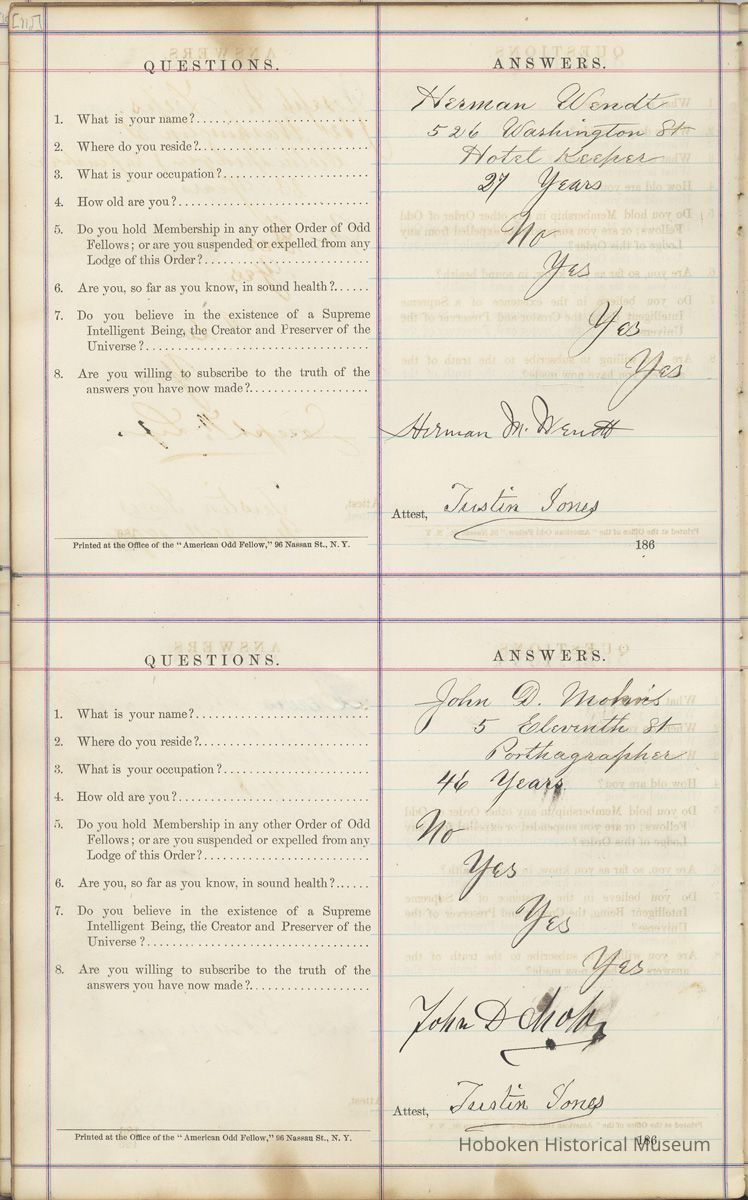 QUESTIONS.
ANSWERS.
1. What is your name?
Herman Wendt
2. Where do you reside?
526 Washington St
3. What is your occupation?
Hotel Keeper
4. How old are you?
27 Years
5. Do you hold Membership in any other Order of Odd
Fellows; or are you suspended or expelled from any
Lodge of this Order?
No
6. Are you, so far as you know, in sound health?
Yes
7. Do you believe in the existence of a Supreme
Intelligent Being, the Creator and Preserver of the
Universe?
Yes
8. Are you willing to subscribe to the truth of the
answers you have now made?
Yes
Herman M. Wendt
Attest, Tustin Jones
Printed at the Office of the "American Odd Fellow," 96 Nassau St., N. Y.
186
QUESTIONS.
ANSWERS.
1. What is your name?
John D.
2. Where do you reside?
5 Eleventh St
3. What is your occupation?
Porthagrapher
4. How old are you?
46 Years
5. Do you hold Membership in any other Order of Odd
Fellows; or are you suspended or expelled from any
Lodge of this Order?
No
6. Are you, so far as you know, in sound health?
Yes
7. Do you believe in the existence of a Supreme
Intelligent Being, the Creator and Preserver of the
Universe?
Yes
8. Are you willing to subscribe to the truth of the
answers you have now made?
Yes
John D
Attest, Tustin Jones
Printed at the Office of the "American Odd Fellow," 96 Nassau St., N. Y.
186
Hoboken Historical Museum